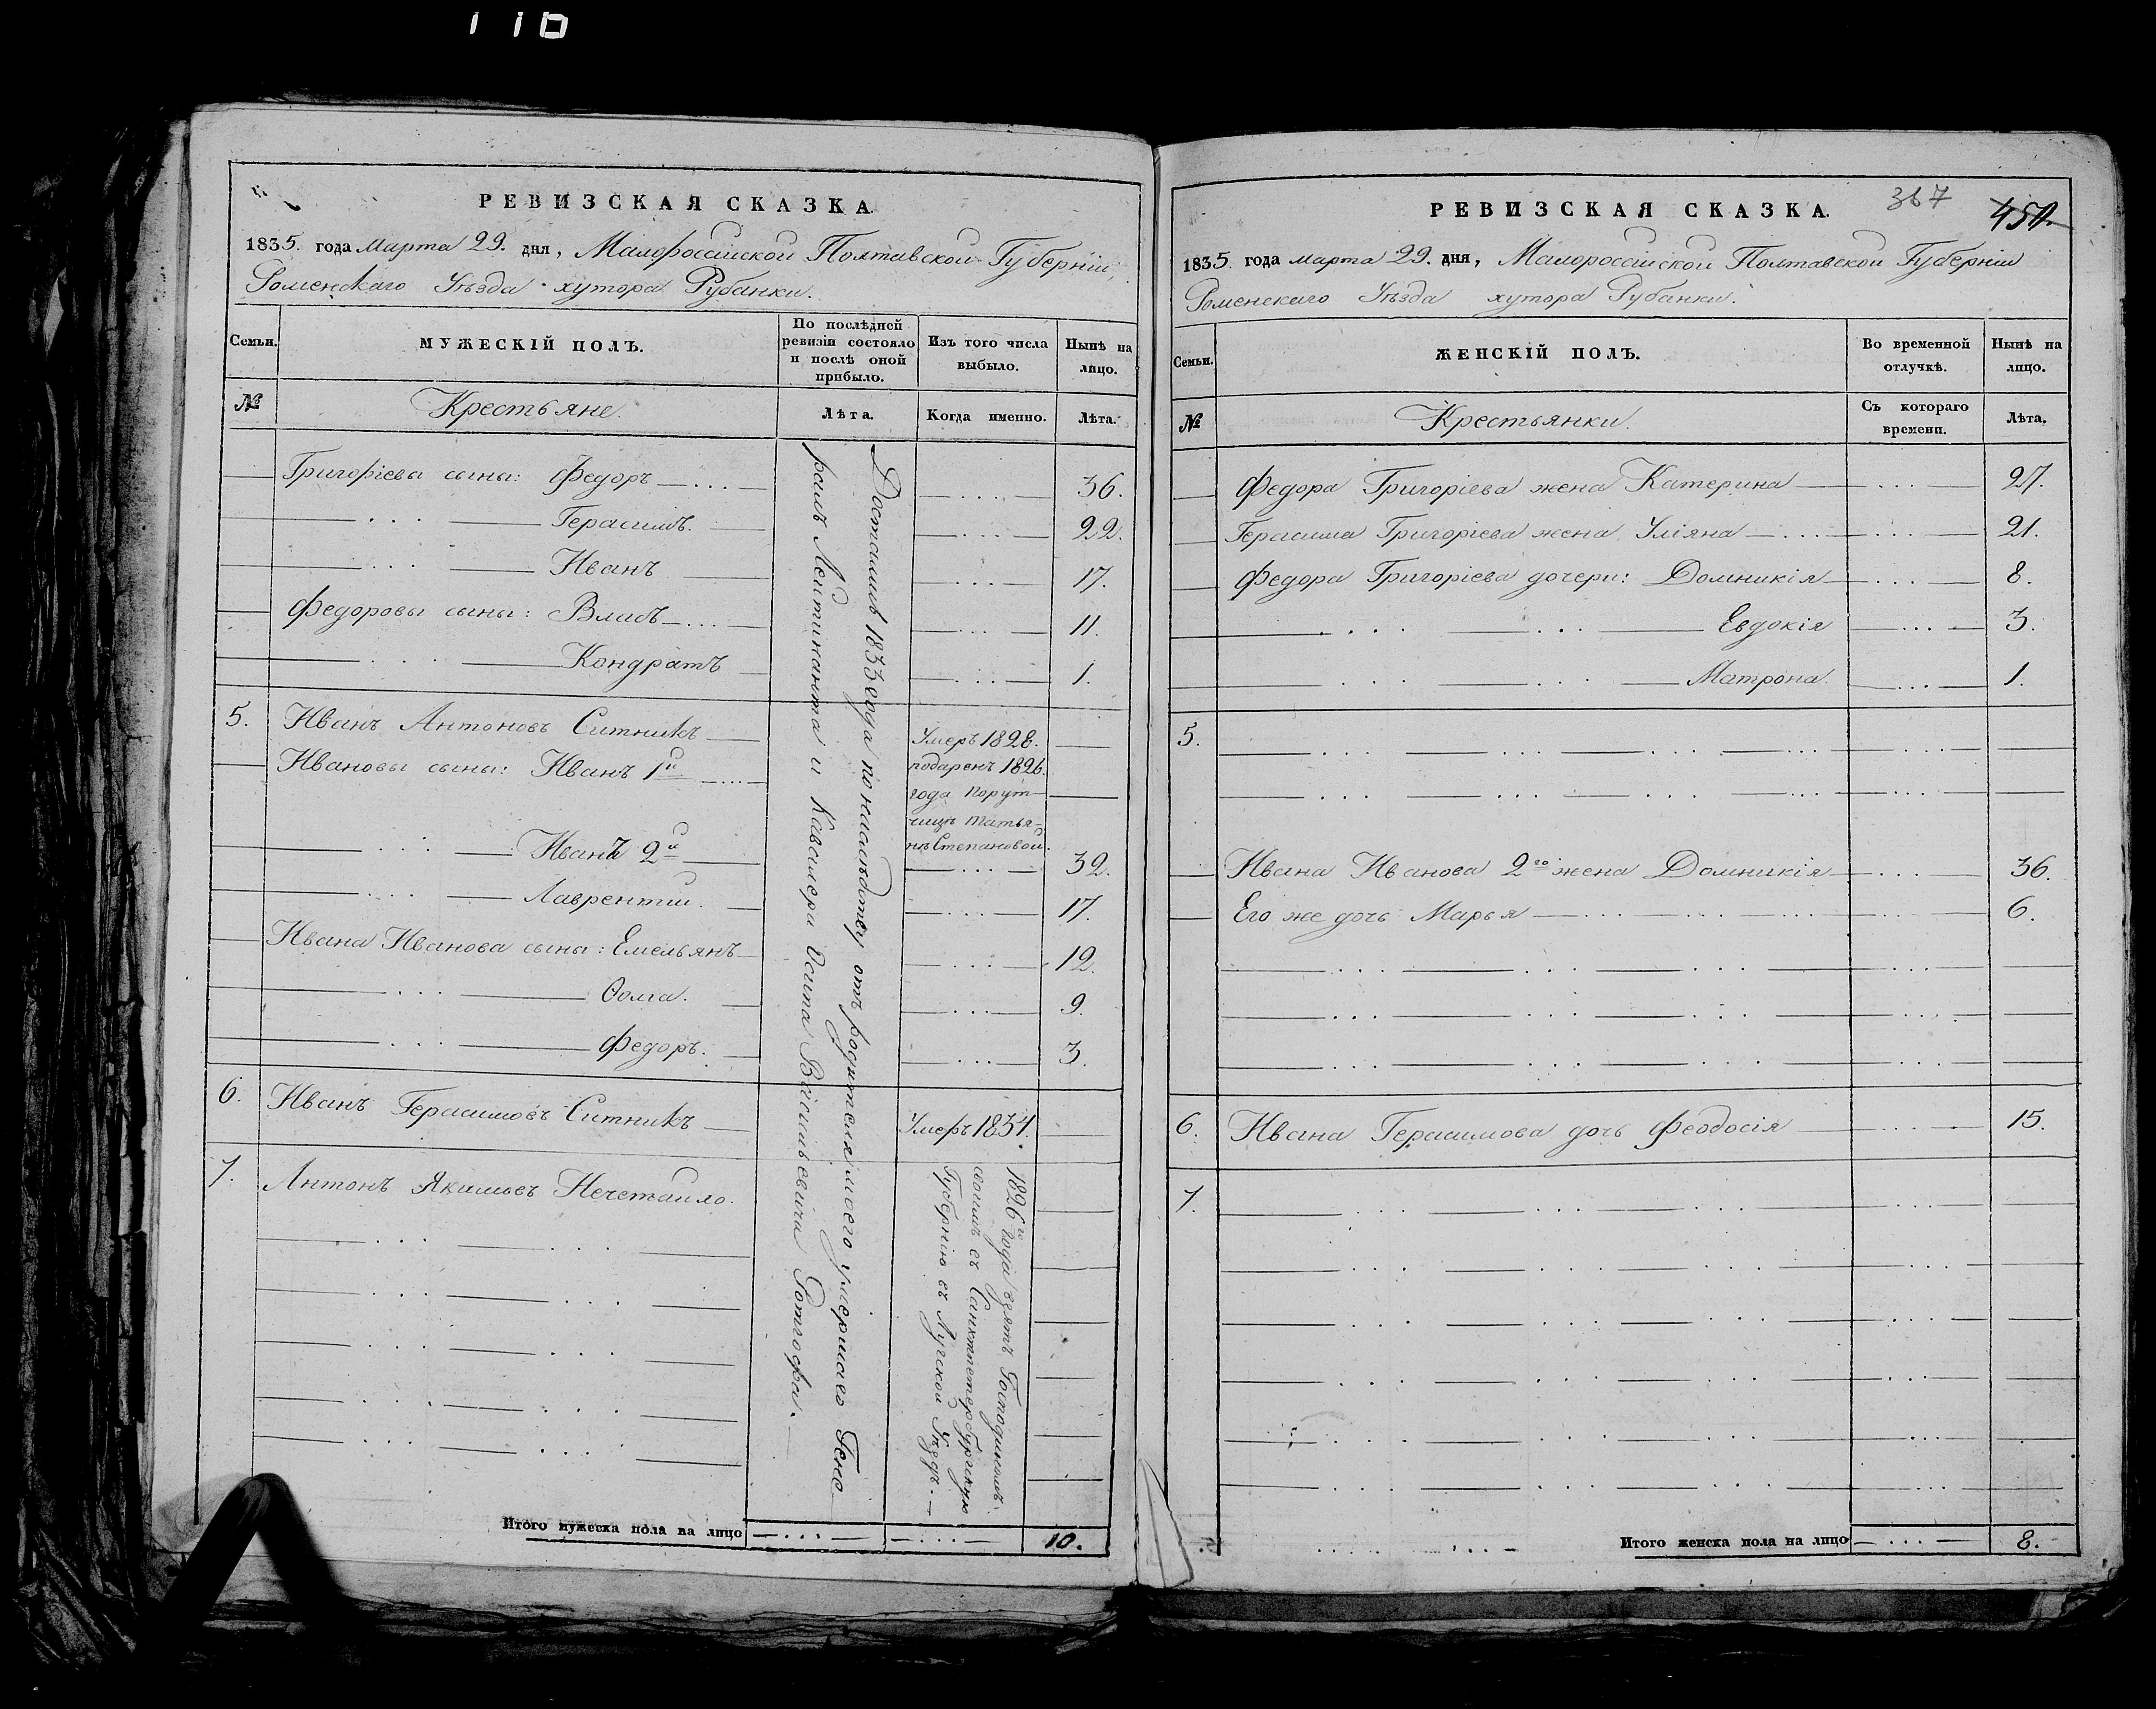 116
РЕВИЗСКАЯ СКАЗКА.
1835. года Марта 29. дня, Малоросійской Полтавской Губерніи,
Роменскаго Уѣзда хутора Рубанки.
Семьи.
МУЖЕСКІЙ ПОЛЪ.
По послѣдней ревизіи состояло и послѣ оной прибыло.
Изъ того числа выбыло.
Нынѣ на лицо.
№
Крестьяне.
Лѣта.
Когда именно.
Лѣта.
Григоріева сыны: Федоръ 36.
Герасимъ. 22.
Иванъ 17.
Федоровы сыны: Власъ 11.
Кондратъ 1.
5. Иванъ Антоновъ Ситникъ Умеръ 1828.
Ивановы сыны: Иванъ 1й подаренъ 1826.
года Порут-
чицѣ Татья-
нѣ Степановой.
Иванъ 2й 32.
Лаврентій. 17.
Ивана Иванова сыны: Емельянъ 12.
Ѳома. 9.
Федоръ. 3.
6. Иванъ Герасимовъ Ситникъ Умеръ 1831.
7. Антонъ Якимовъ Нечетайло.
Достались 1833 года по наслѣдству отъ родителя моего умершаго Гене
ралъ Лейтинанта и Кавалера Осипа Васильевича Ротгофа.
1826го года взятъ Господиномъ
своимъ въ Санктпетербургскую
Губернію въ Лугской Уѣздъ.
Итого мужеска пола на лицо 10.
367
450.
РЕВИЗСКАЯ СКАЗКА.
1835. года Марта 29. дня, Малоросійской Полтавской Губерніи
Роменскаго Уѣзда хутора Рубанки.
Семьи.
ЖЕНСКІЙ ПОЛЪ.
Во временной отлучкѣ.
Нынѣ на лицо.
№
Крестьянки.
Съ котораго времени.
Лѣта.
Федора Григоріева жена Катерина 27.
Герасима Григоріева жена Уліяна 21.
Федора Григоріева дочери: Домникія 8.
Евдокія 3.
Матрона. 1.
5.
Ивана Иванова 2го жена Домникія 36.
Его же дочь Марья 6.
6. Ивана Герасимова дочь Феодосія 15.
7.
Итого женска пола на лицо 8.